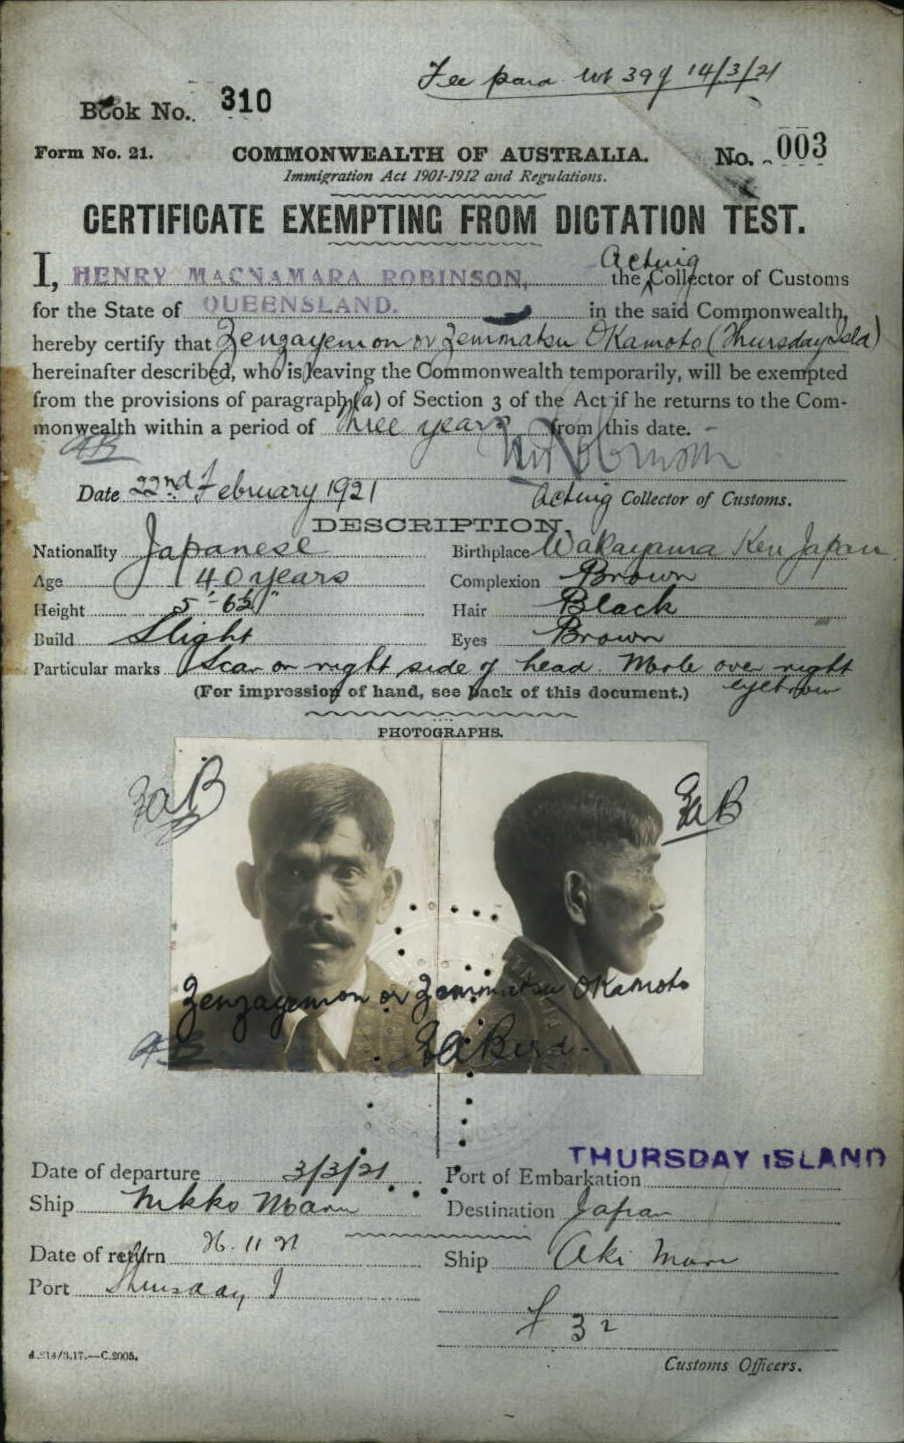 Fee paid 14/3/21
Book No. 310
Form No. 21.
COMMONWEALTH OF AUSTRALIA.
No. 003
Immigration Act 1901-1912 and Regulations.
CERTIFICATE EXEMPTING FROM DICTATION TEST.
I, HENRY MACNAMARA ROBINSON, the Acting Collector of Customs
for the State of QUEENSLAND. in the said Commonwealth,
hereby certify that Zenzayemon or Zemmatsu Okamoto (Thursday Isld)
hereinafter described, who is leaving the Commonwealth temporarily, will be exempted
from the provisions of paragraph (a) of Section 3 of the Act if he returns to the Com-
monwealth within a period of Three years from this date.
Date 22nd February 1921
Acting Collector of Customs.
DESCRIPTION.
Nationality Japanese
Birthplace Wakayama Ken Japan
Age 40 years
Complexion Brown
Height 5'-6½"
Hair Black
Build Slight
Eyes Brown
Particular marks Scar on right side of head. Mole over right
eyebrow
(For impression of hand, see back of this document.)
PHOTOGRAPHS.
Zenzayemon or Zemmatsu Okamoto
Bird.
Date of departure 3/3/21
Port of Embarkation THURSDAY ISLAND
Ship Nikko Maru
Destination Japan
Date of return 26.11.21
Ship Aki Maru
Port Thursday I
32
Customs Officers.